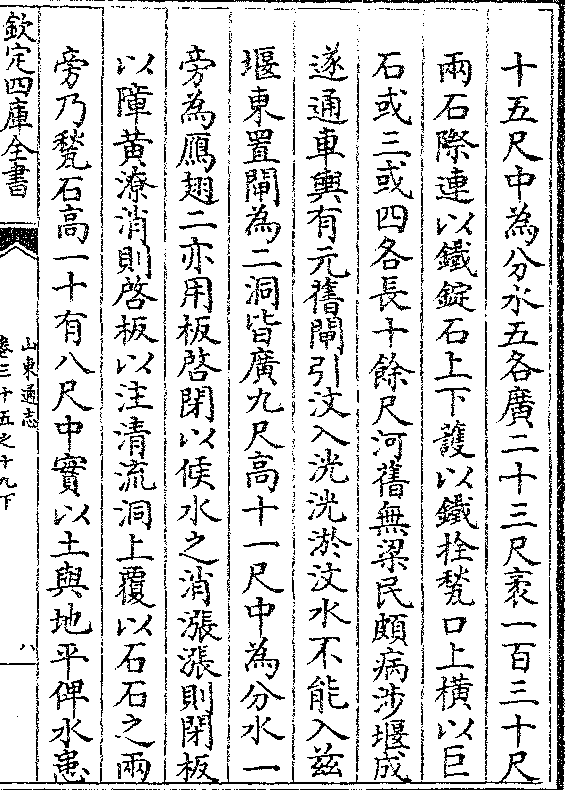 十五尺中為分水五各廣二十三尺袤一百三十尺
兩石際連以鐵錠石上下護以鐵拴甃口上橫以巨
石或三或四各長十餘尺河舊無梁民頗病涉堰成
遂通車輿有元舊閘引汶入洸洸淤汶水不能入兹
堰東置閘為二洞皆廣九尺高十一尺中為分水一
旁為鴈翅二亦用板啓閉以候水之消漲漲則閉板
以障黃潦消則啓板以注清流洞上覆以石石之兩
旁乃甃石高一十有八尺中實以土與地平俾水患
欽定四庫全書
山東通志
卷三十五之十九下
八